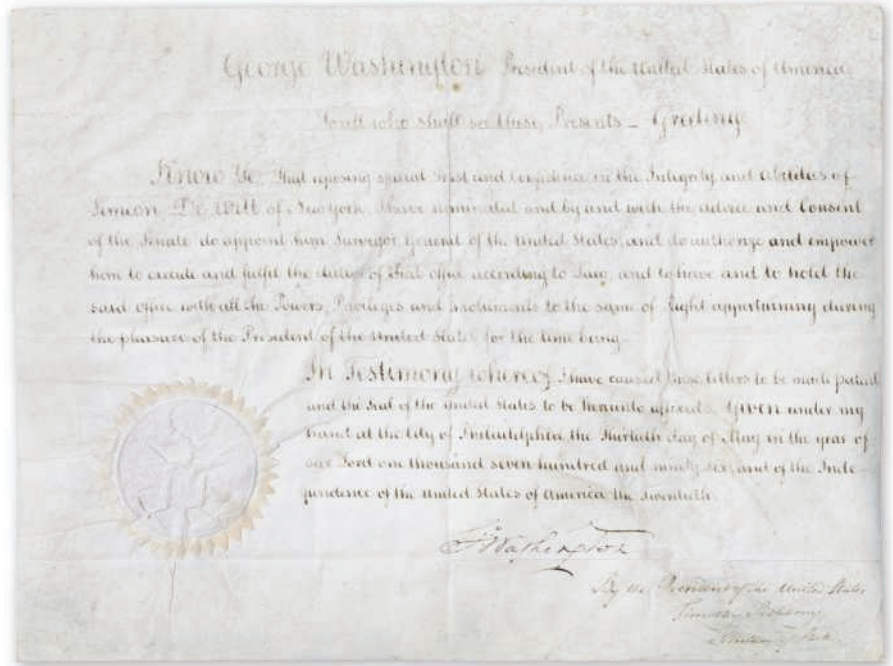 George Washington President of the United States of America
To all who shall see these Presents – Greeting
Know Ye, That reposing special Trust and Confidence in the Integrity and Abilities of
Simeon De Witt of New York I have nominated and by and with the advice and Consent
of the Senate do appoint him Surveyor General of the United States, and do authorize and empower
him to execute and fulfil the duties of that office according to Law; and to have and to hold the
said office with all the Powers, Privileges and Emoluments to the same of Right appertaining during
the pleasure of the President of the United States for the time being.
In Testimony whereof I have caused these letters to be made patent
and the Seal of the United States to be hereunto affixed. Given under my
hand at the City of Philadelphia the Thirtieth day of May in the year of
our Lord one thousand seven hundred and ninety six, and of the Inde-
pendence of the United States of America the Twentieth.
G Washington
By the President of the United States
Timothy Pickering
Secretary of State.